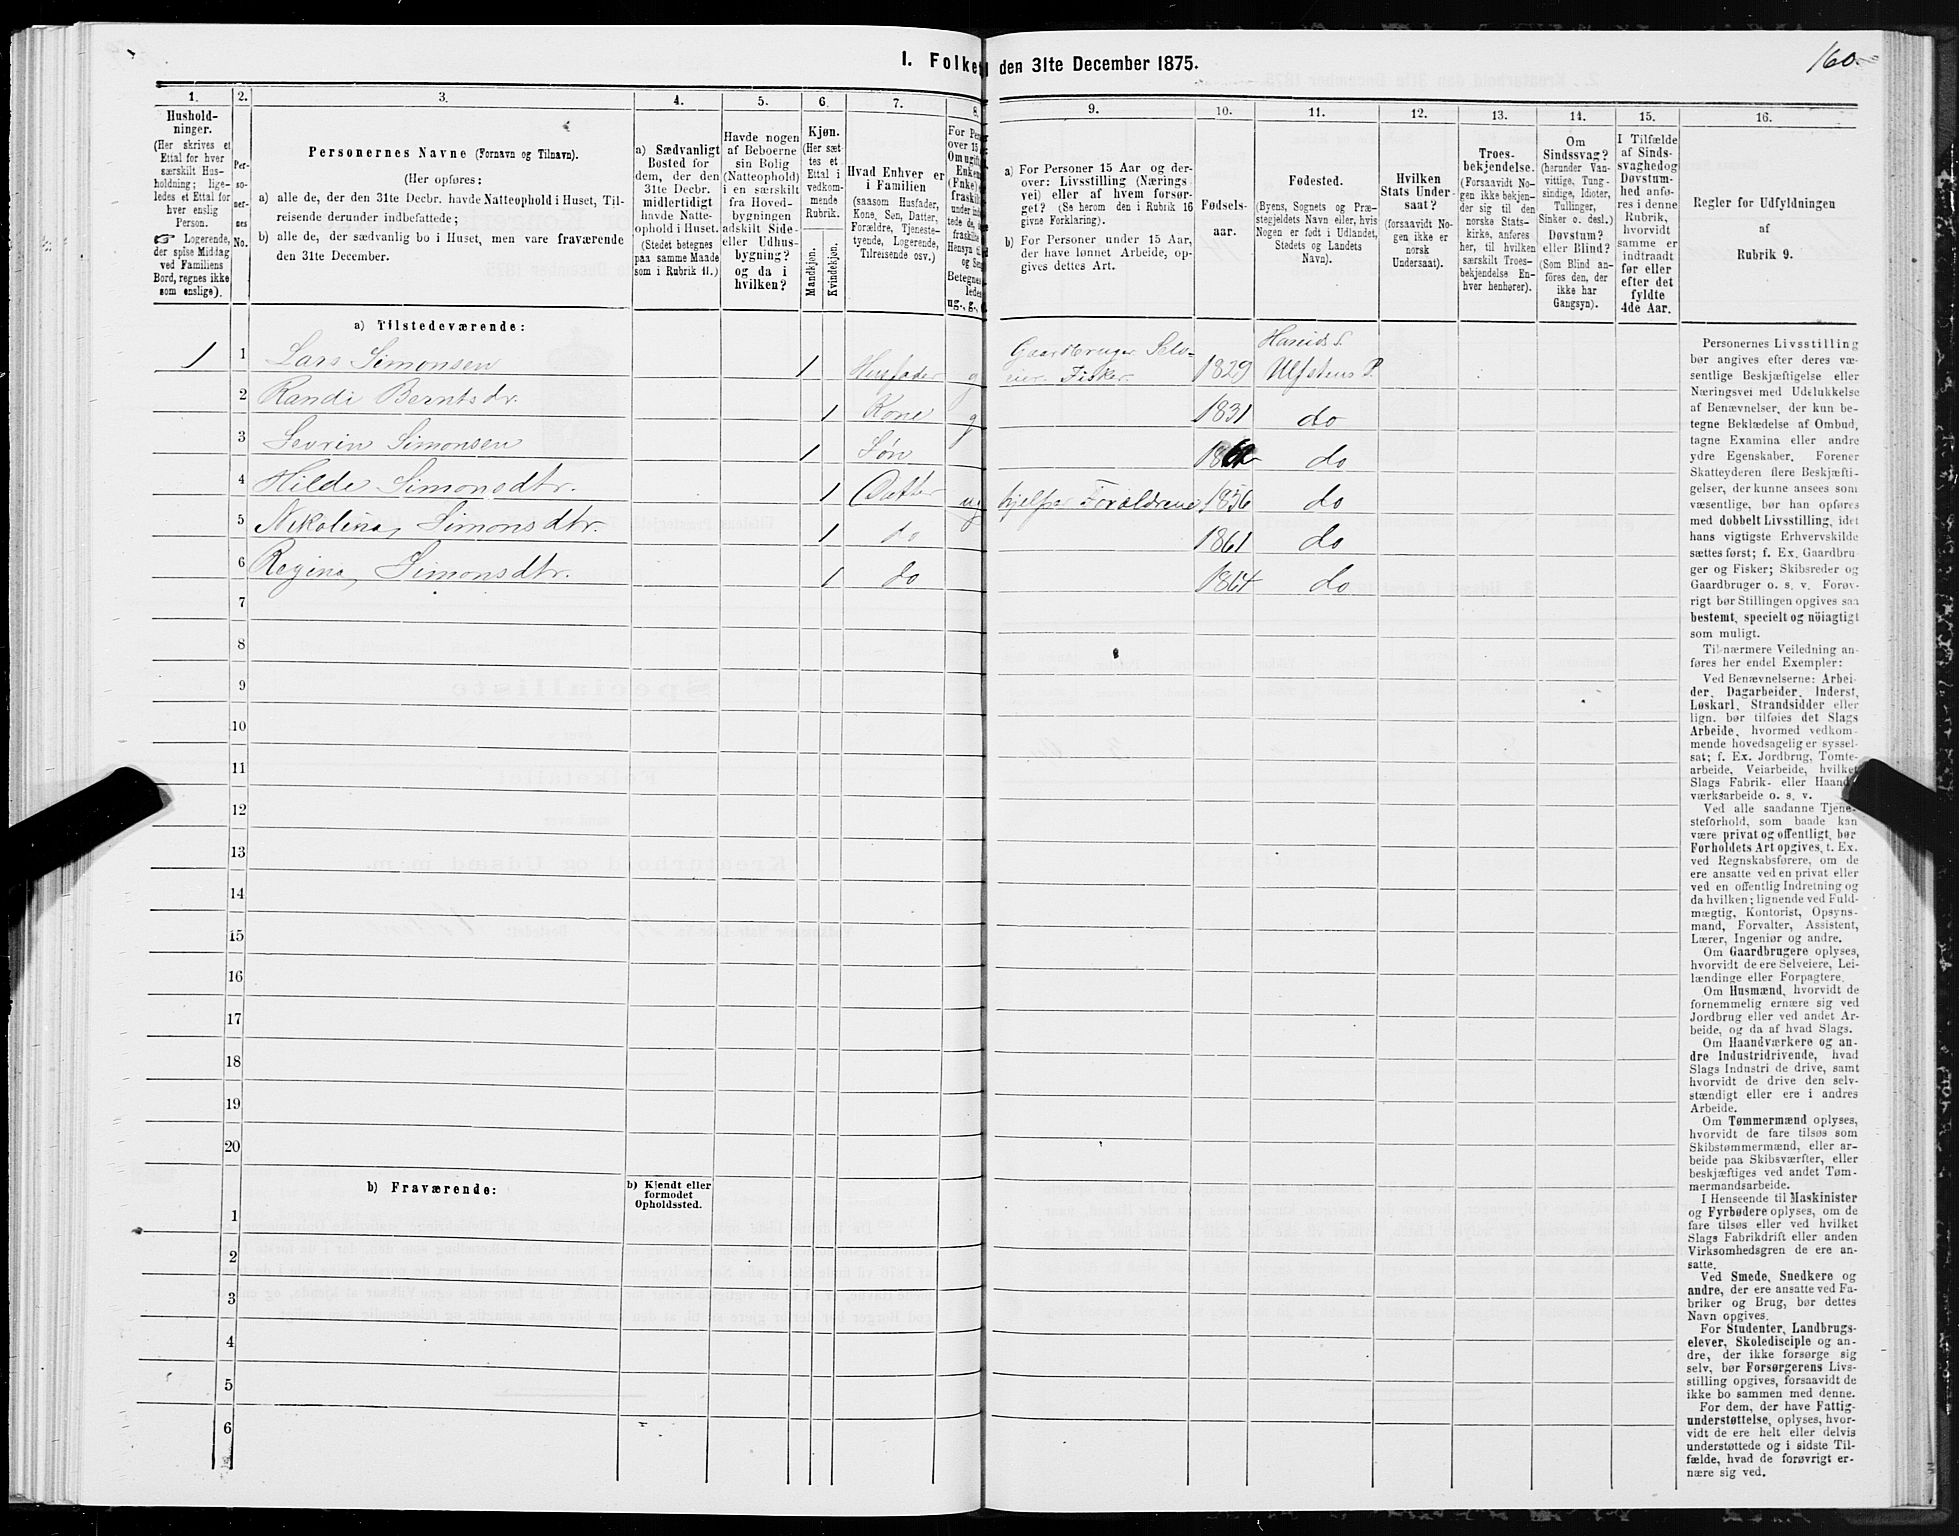 I. Folke den 31te December 1875.
160
1.
2.
3.
4.
5.
6.
7.
8.
9.
10.
11.
12.
13.
14.
15.
16.
Hushold-
ninger.
(Her skrives et
Ettal for hver
særskilt Hus-
holdning; lige-
ledes et Ettal for
hver enslig
Person.
☞ Logerende,
der spise Middag
ved Familiens
Bord, regnes ikke
som enslige).
Per-
so-
ner-
nes
No.
Personernes Navne (Fornavn og Tilnavn).
(Her opføres:
a) alle de, der den 31te Decbr. havde Natteophold i Huset, Til-
reisende derunder indbefattede;
b) alle de, der sædvanlig bo i Huset, men vare fraværende
den 31te December.
a) Sædvanligt
Bosted for
dem, der den
31te Decbr.
midlertidigt
havde Natte-
ophold i Huset.
(Stedet betegnes
paa samme Maade
som i Rubrik 11.)
Havde nogen
af Beboerne
sin Bolig
(Natteophold)
i en særskilt
fra Hoved-
bygningen
adskilt Side-
eller Udhus-
bygning?
og da i
hvilken?
Kjøn.
(Her sæt-
tes et
Ettal i
vedkom-
mende
Rubrik.
Mandkjøn.
Kvindekjøn.
Hvad Enhver er
i Familien
(saasom Husfader,
Kone, Søn, Datter,
Forældre, Tjeneste-
tyende, Logerende,
Tilreisende osv.)
For Per
over 15
Om ugift
Enken
(Enke)
fraskilt
under ind
tede de,
fraskilte
Hensyn ti
og Se
Betegnes
ledes
ug., g.,
a) For Personer 15 Aar og der-
over: Livsstilling (Nærings
vei) eller af hvem forsør-
get? (Se herom den i Rubrik 16
givne Forklaring).
b) For Personer under 15 Aar,
der have lønnet Arbeide, op-
gives dettes Art.
Fødsels-
aar.
Fødested.
(Byens, Sognets og Præ-
stegjeldets Navn eller, hvis
Nogen er født i Udlandet,
Stedets og Landets
Navn).
Hvilken
Stats Under-
saat?
(forsaavidt No-
gen ikke er
norsk
Undersaat).
Troes-
bekjendelse.
(Forsaavidt No-
gen ikke bekjen-
der sig til den
norske Stats-
kirke, anføres
her, til hvilken
særskilt Troes-
bekjendelse En-
hver henhører).
Om
Sindssvag?
(herunder Van-
vittige, Tung-
sindige, Idioter,
Tullinger,
Sinker o. desl.)
Døvstum?
eller Blind?
(Som Blind an-
føres den, der
ikke har
Gangsyn).
I Tilfælde
af Sinds-
svaghed og
Døvstum-
hed anfø-
res i denne
Rubrik,
hvorvidt
samme er
indtraadt
før eller
efter det
fyldte
4de Aar.
Regler for Udfyldningen
af
Rubrik 9.
a) Tilstedeværende:
1 1 Lars Simonsen 1 Husfader g Gaardbruger Selv-
eier. Fisker. 1829 Hareids S.
Ulfstens P.
2 Randi Berntsdr. 1 Kone g 1831 do
3 Sevrin Simonsen 1 Søn do
4 Hilde Simonsdtr. 1 Datter ug hjelper Forældrene 1856 do
5 Nikolina, Simonsdtr. 1 do 1861 do
6 Regina, Simonsdtr. 1 do 1864 do
7
8
9
10
11
12
13
14
15
16
17
18
19
20
b) Fraværende:
b) Kjendt eller
formodet
Opholdssted.
1
2
3
4
5
6
Personernes Livsstilling
bør angives efter deres væ-
sentlige Beskjæftigelse eller
Næringsvei med Udelukkelse
af Benævnelser, der kun be-
tegne Beklædelse af Ombud,
tagne Examina eller andre
ydre Egenskaber. Forener
Skatteyderen flere Beskjæfti-
gelser, der kunne ansees som
væsentlige, bør han opføres
med dobbelt Livsstilling, idet
hans vigtigste Erhvervskilde
sættes først; f. Ex. Gaardbru-
ger og Fisker; Skibsreder og
Gaardbruger o. s. v. Forøv-
rigt bør Stillingen opgives saa
bestemt, specielt og nöiagtigt
som muligt.
Til nærmere Veiledning an-
føres her endel Exempler:
Ved Benævnelserne: Arbei-
der, Dagarbeider, Inderst,
Løskarl, Strandsidder eller
lign. bør tilføies det Slags
Arbeide, hvormed vedkom-
mende hovedsagelig er syssel-
sat; f. Ex. Jordbrug, Tomte-
arbeide, Veiarbeide, hvilket
Slags Fabrik- eller Haand-
værksarbeide o. s. v.
Ved alle saadanne Tjene-
steforhold, som baade kan
være privat og offentligt, bør
Forholdets Art opgives, t. Ex.
ved Regnskabsførere, om de
ere ansatte ved en privat eller
ved en offentlig Indretning og
da hvilken; lignende ved Fuld-
mægtig, Kontorist, Opsyns-
mand, Forvalter, Assistent,
Lærer, Ingeniør og andre.
Om Gaardbrugere oplyses,
hvorvidt de ere Selveiere, Lei-
lændinge eller Forpagtere.
Om Husmænd, hvorvidt de
fornemmelig ernære sig ved
Jordbrug eller ved andet Ar-
beide, og da af hvad Slags.
Om Haandværkere og an-
dre Industridrivende, hvad
Slags Industri de drive, samt
hvorvidt de drive den selv-
stændigt eller ere i andres
Arbeide.
Om Tømmermænd oplyses,
hvorvidt de fare tilsøs som
Skibstømmermænd, eller ar-
beide paa Skibsværfter, eller
beskjæftiges ved andet Tøm-
mermandsarbeide.
I Henseende til Maskinister
og Fyrbødere oplyses, om de
fare tilsøs eller ved hvilket
Slags Fabrikdrift eller anden
Virksomhedsgren de ere an-
satte.
Ved Smede, Snedkere og
andre, der ere ansatte ved Fa-
briker og Brug, bør dettes
Navn opgives.
For Studenter, Landbrugs-
elever, Skoledisciple og an-
dre, der ikke forsørge sig
selv, bør Forsørgerens Livs-
stilling opgives, forsaavidt de
ikke bo sammen med denne.
For dem, der have Fattig-
understøttelse, oplyses, hvor-
vidt de ere helt eller delvis
understøttede og i sidste Til-
fælde, hvad de forøvrigt er-
nære sig ved.